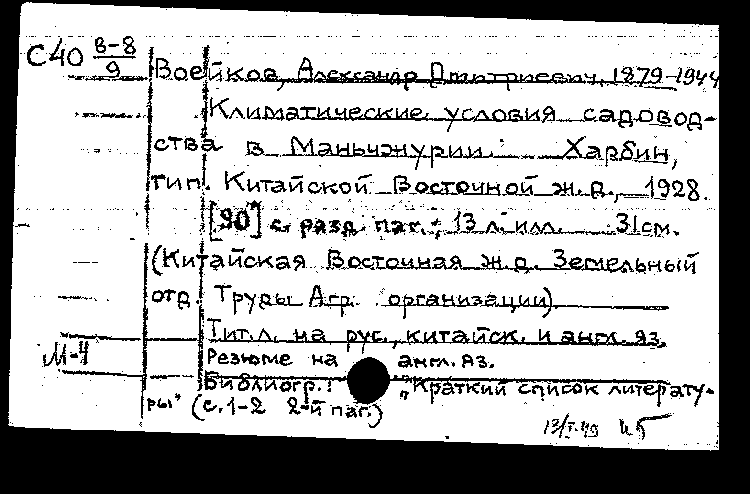 С40 В-8/9
Воейков, Александр Дмитриевич, 1879-1944
Климатические условия садовод-
ства в Маньчжурии. Харбин,
тип. Китайской Восточной ж.д., 1928.
[90] с. разд. паг.; 13 л. илл. 31см.
(Китайская Восточная ж.д. Земельный
отд. Труды Агр. организации)
Тит.л. на рус., китайск. и англ. яз.
М-4 Резюме на англ. яз.
Библиогр.: "Краткий список литерату-
ры" (с.1-2 2-й паг.)
13/I.49